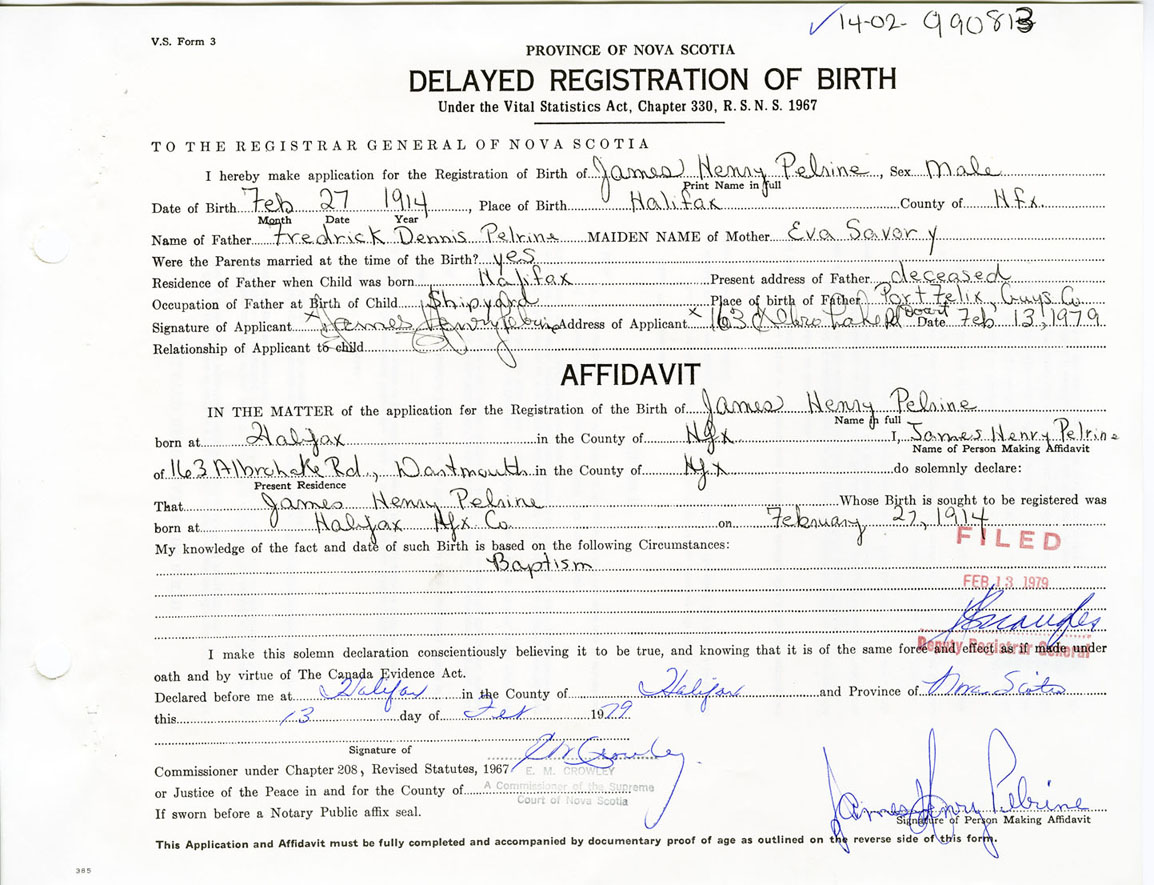 14-02- 990813
V.S. Form 3
PROVINCE OF NOVA SCOTIA
DELAYED REGISTRATION OF BIRTH
Under the Vital Statistics Act, Chapter 330, R. S. N. S. 1967
TO THE REGISTRAR GENERAL OF NOVA SCOTIA
I hereby make application for the Registration of Birth of James Henry Pelrine, Sex Male
Print Name in full
Date of Birth Feb 27 1914, Place of Birth Halifax County of Hfx.
Month Date Year
Name of Father Fredrick Dennis Pelrine MAIDEN NAME of Mother Eva Savory
Were the Parents married at the time of the Birth? yes
Residence of Father when Child was born Halifax Present address of Father deceased
Occupation of Father at Birth of Child Shipyard Place of birth of Father Port Felix, Guys Co.
Signature of Applicant x James Henry Pelrine Address of Applicant x 163 Albro Lake Rd Dart Date Feb 13, 1979
Relationship of Applicant to child
AFFIDAVIT
IN THE MATTER of the application for the Registration of the Birth of James Henry Pelrine
Name in full
born at Halifax in the County of Hfx I, James Henry Pelrine
Name of Person Making Affidavit
of 163 Albro Lake Rd., Dartmouth in the County of Hfx do solemnly declare:
Present Residence
That James Henry Pelrine Whose Birth is sought to be registered was
born at Halifax Hfx Co. on February 27, 1914
FILED
My knowledge of the fact and date of such Birth is based on the following Circumstances:
Baptism
FEB 13 1979
Deputy Registrar General
I make this solemn declaration conscientiously believing it to be true, and knowing that it is of the same force and effect as if made under
oath and by virtue of The Canada Evidence Act.
Declared before me at Halifax in the County of Halifax and Province of Nova Scotia
this 13 day of Feb 1979
Signature of E M Crowley
Commissioner under Chapter 208, Revised Statutes, 1967 E. M. CROWLEY
or Justice of the Peace in and for the County of A Commissioner of the Supreme
Court of Nova Scotia
If sworn before a Notary Public affix seal.
James Henry Pelrine
Signature of Person Making Affidavit
This Application and Affidavit must be fully completed and accompanied by documentary proof of age as outlined on the reverse side of this form.
385